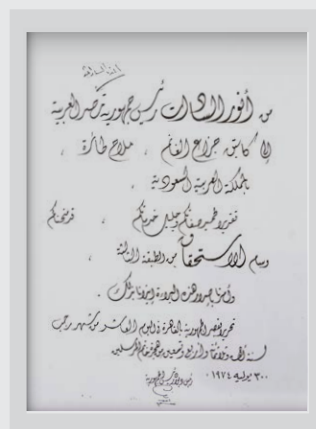 من أنور السادات رئيس جمهورية مصر العربية
إلى كابتن جزاع الغانم ، ملاح طائرة ،
بالمملكة العربية السعودية ،
تقديراً لحميد صفاتكم وجليل خدماتكم ، قد منحناكم
وسام الاستحقاق من الطبقة الثالثة ،
وأمرنا بإصدار هذه البراءة إيذاناً بذلك .
تحريراً بقصر الجمهورية بالقاهرة في اليوم العاشر من شهر رجب
لسنة ألف وثلاثمائة وأربع وتسعين من هجرة خاتم المرسلين
٣٠ يوليه ١٩٧٤